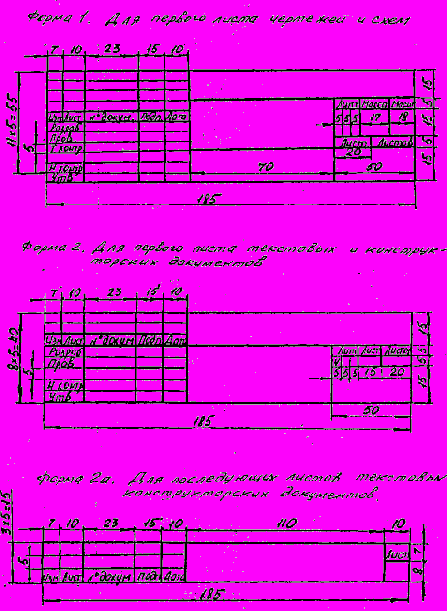 Форма 1. Для первого листа чертежей и схем
7 10 23 15 10
Изм Лист № докум. Подп. Дата
Разраб
Пров
Т.контр.
Н.контр
Утв
Лит Масса
5 5 5 17 18
Лист Листов
20
70 50
11×5=55
5
15 5 15 5 15
185
Форма 2. Для первого листа текстовых и конструк-
торских документов
7 10 23 15 10
Изм Лист № докум Подп Дат
Разраб
Пров
Н.контр
Утв
Лит Лист Листов
5 5 5 15 20
50
8×5=40
5
15 5 5 15
185
Форма 2а. Для последующих листов текстовых
конструкторских документов
7 10 23 15 10 110 10
Изм Лист № докум Подп Дата
Лист
3×5=15
5
8 7
185